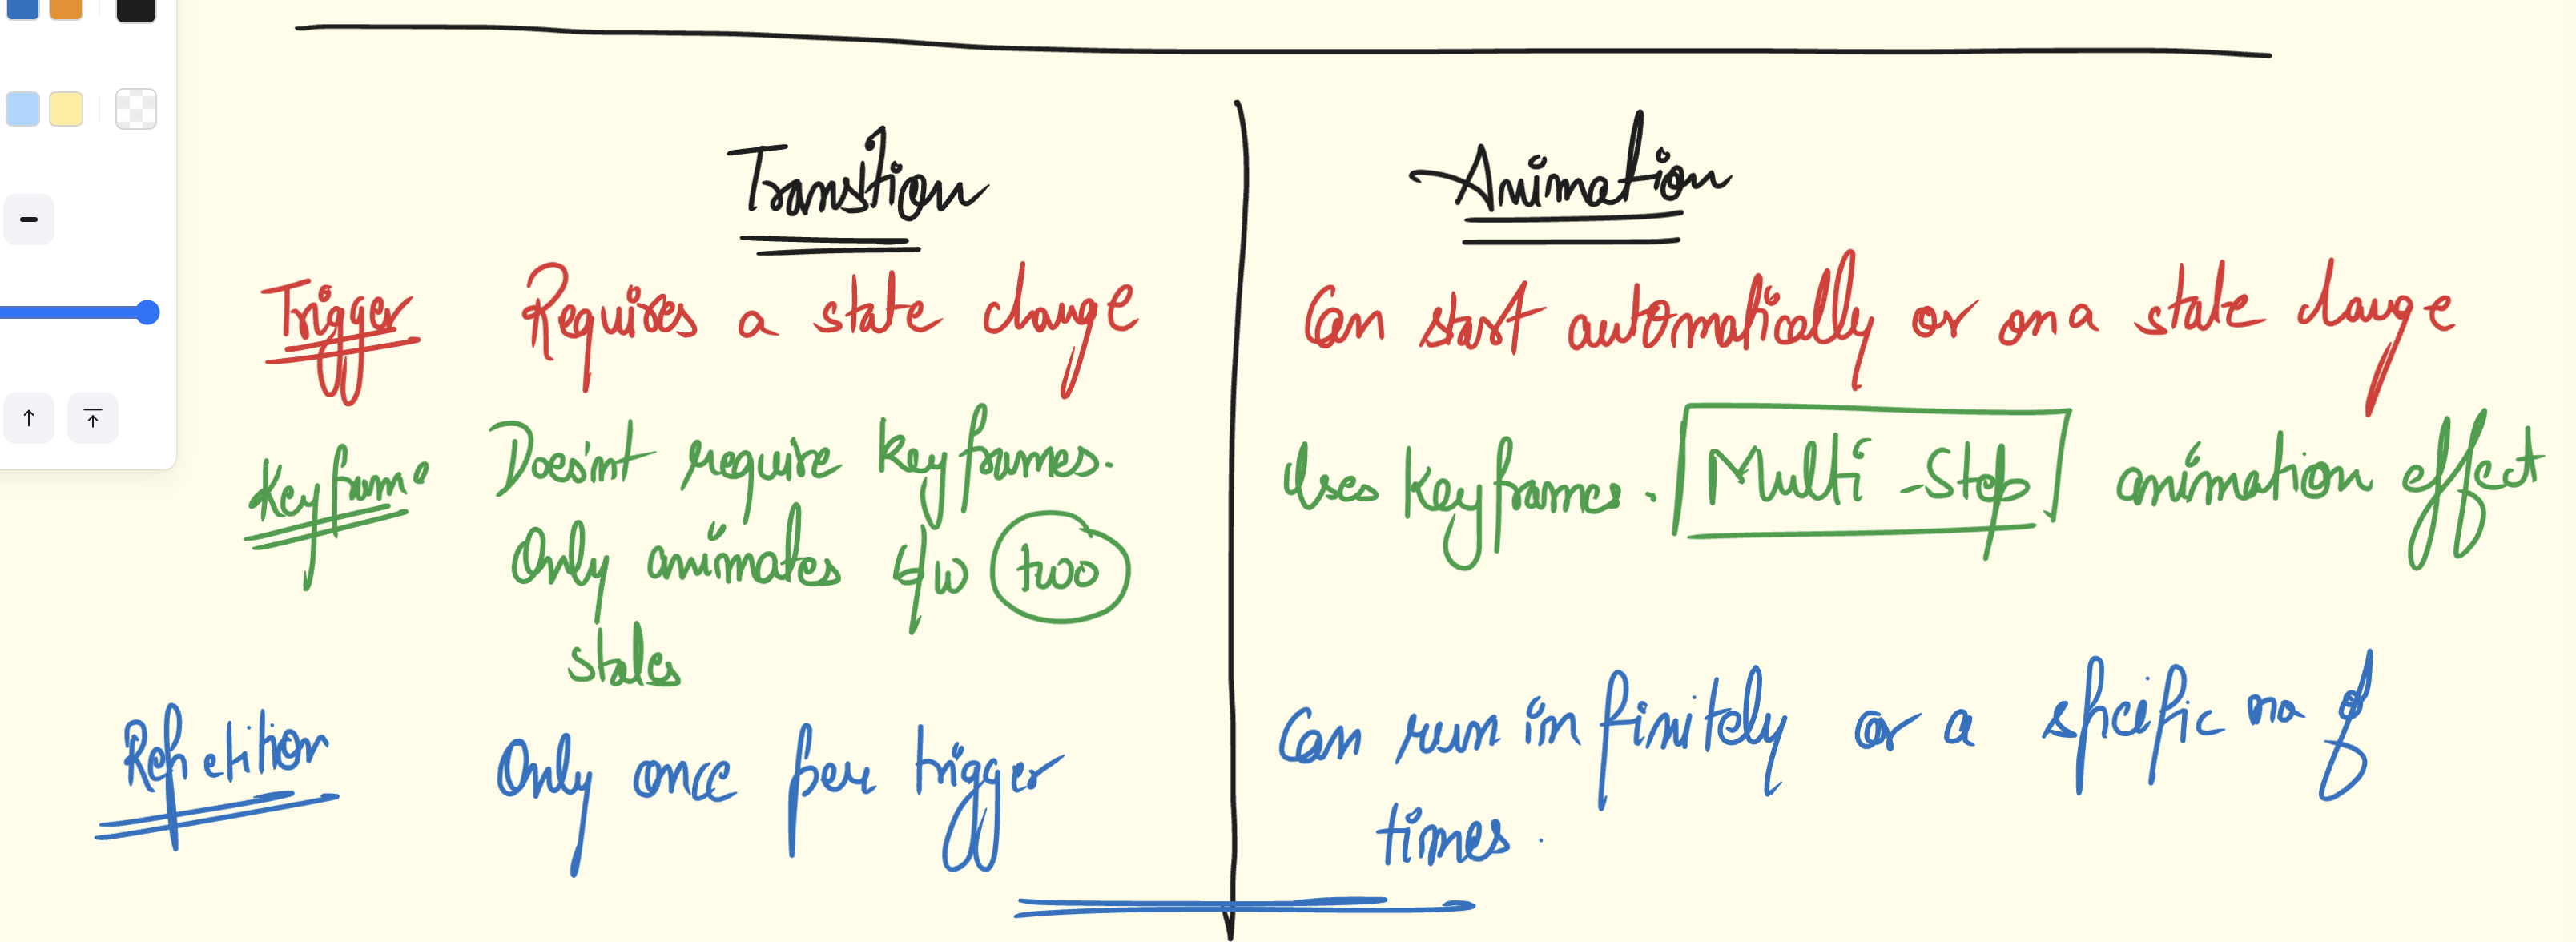 Transition Animation
Trigger Requires a state change Can start automatically or on a state change
Keyframe Does'nt require keyframes. Uses keyframes. Multi-Step animation effect
Only animates b/w two
states
Repetition Only once per trigger Can run infinitely or a specific no of
times.